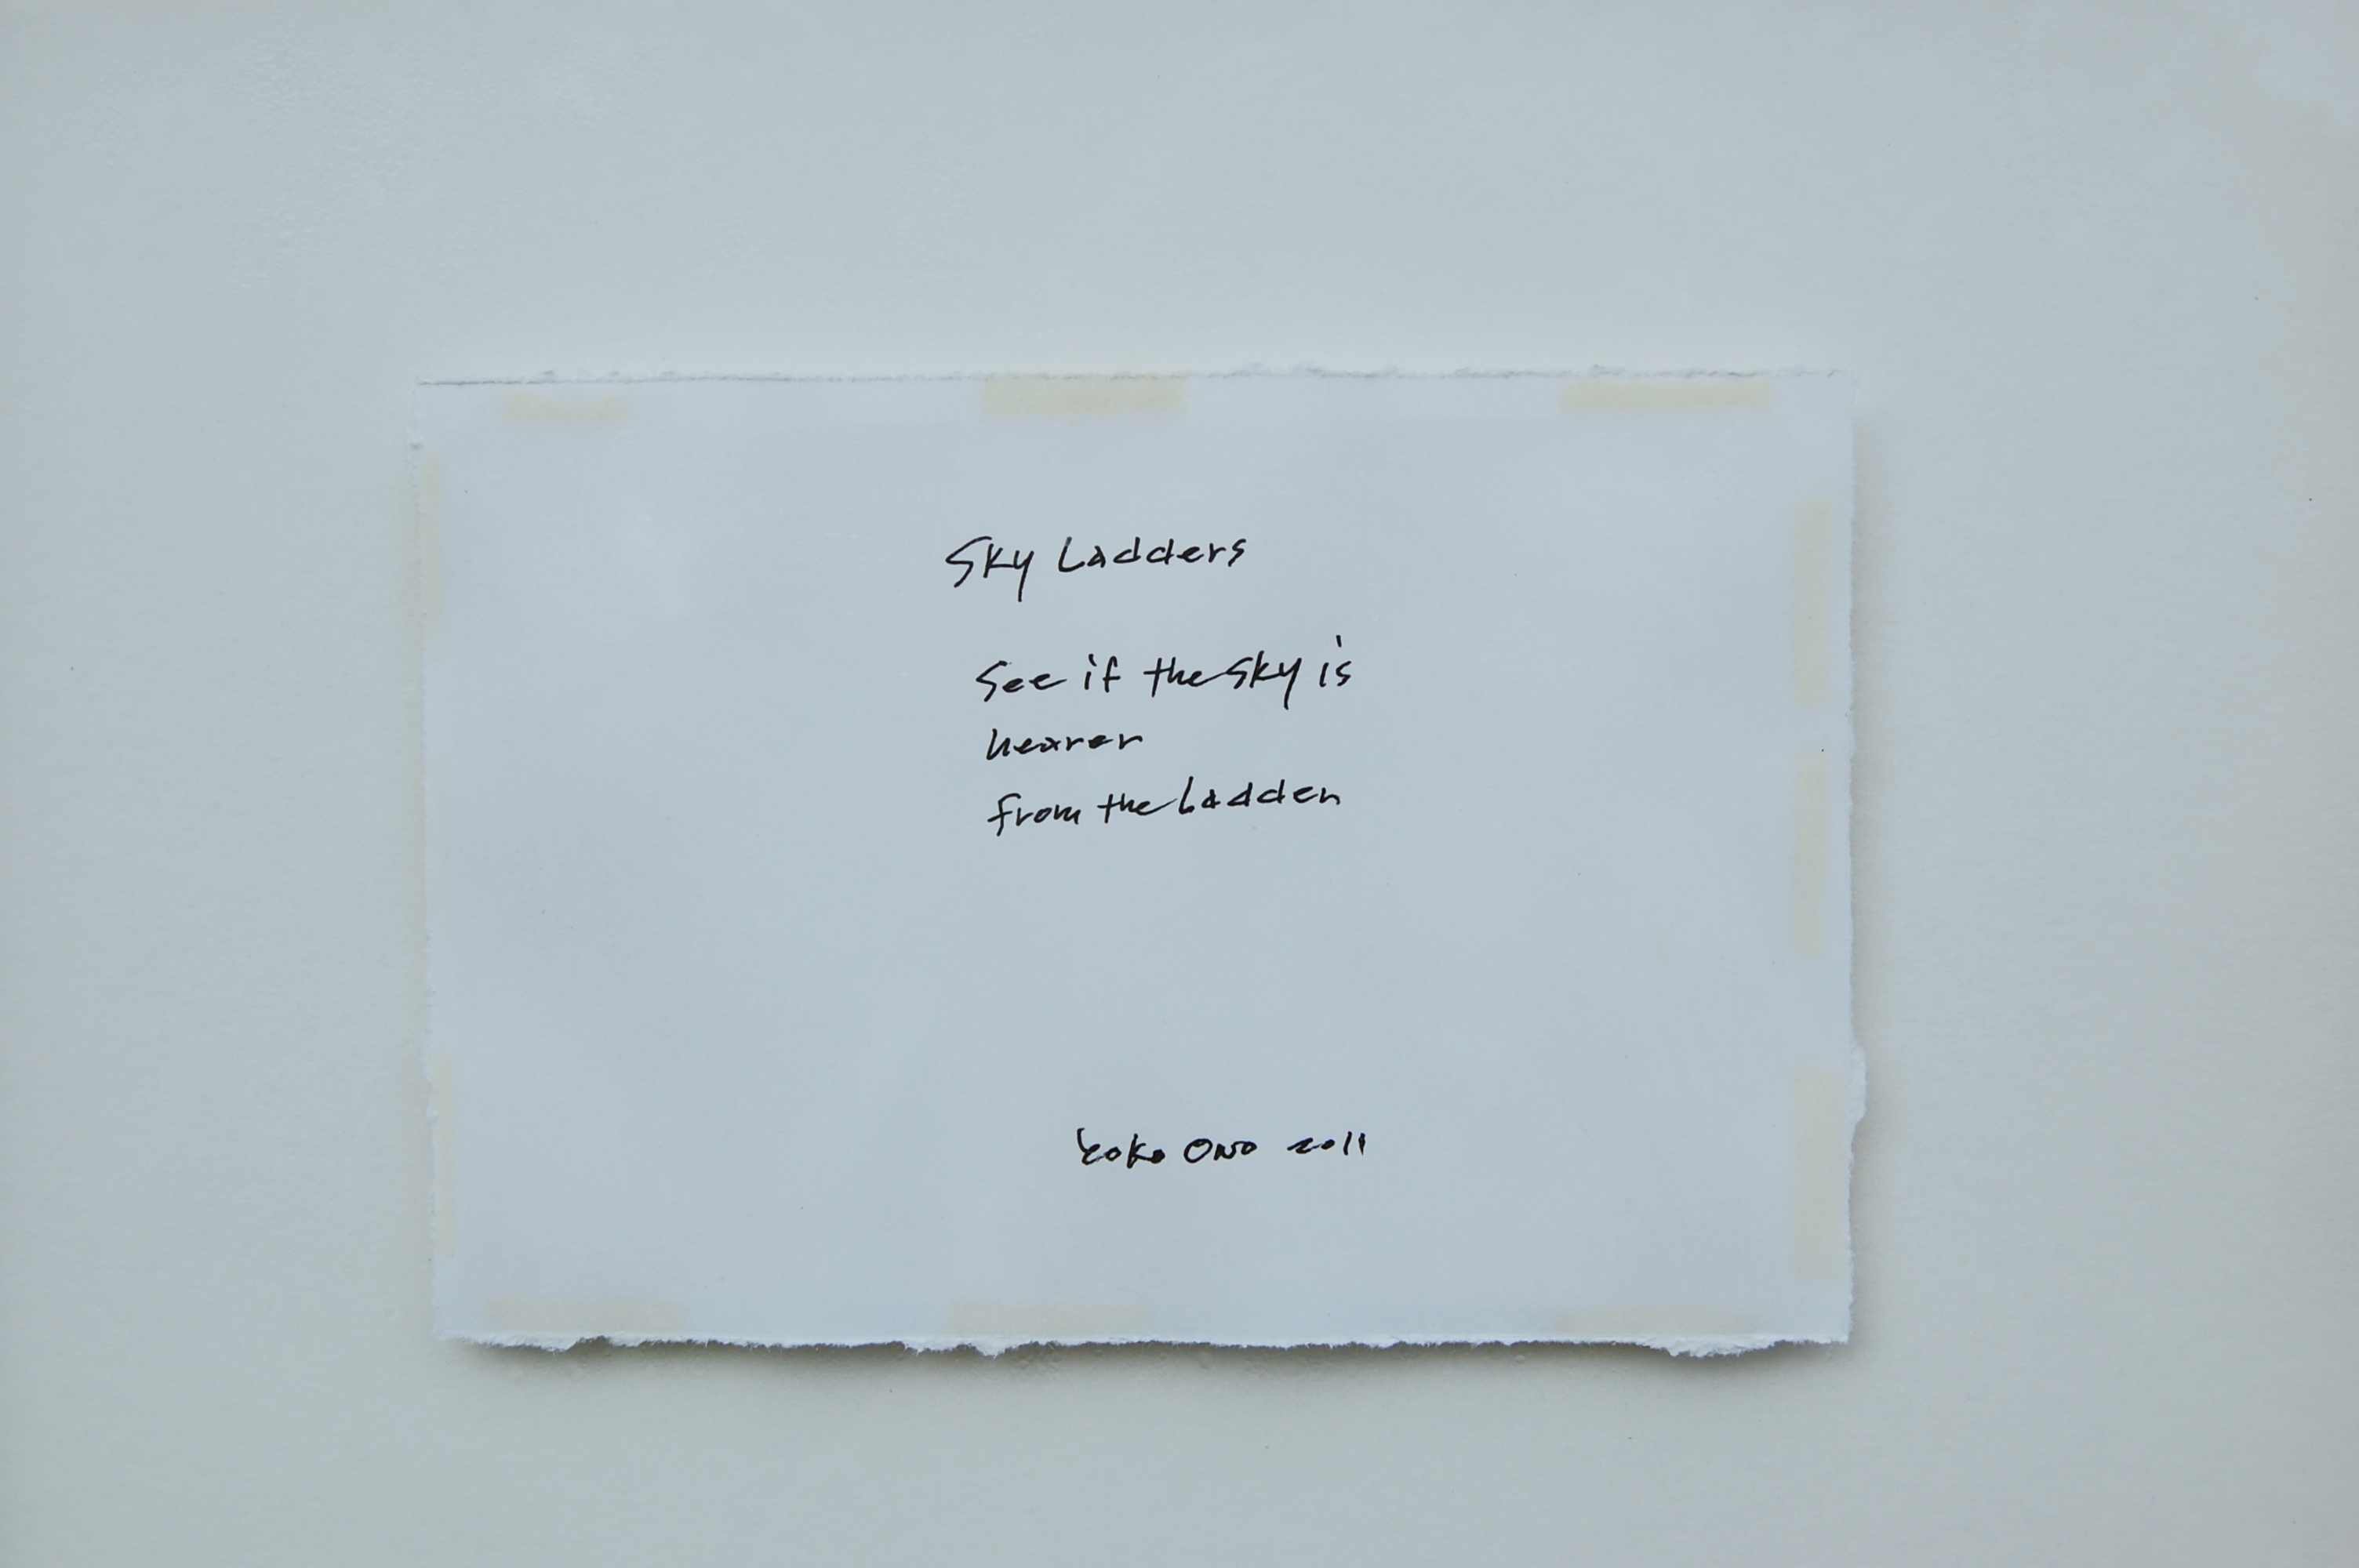 Sky Ladders
See if the Sky is
nearer
from the Ladder
Yoko Ono 2011